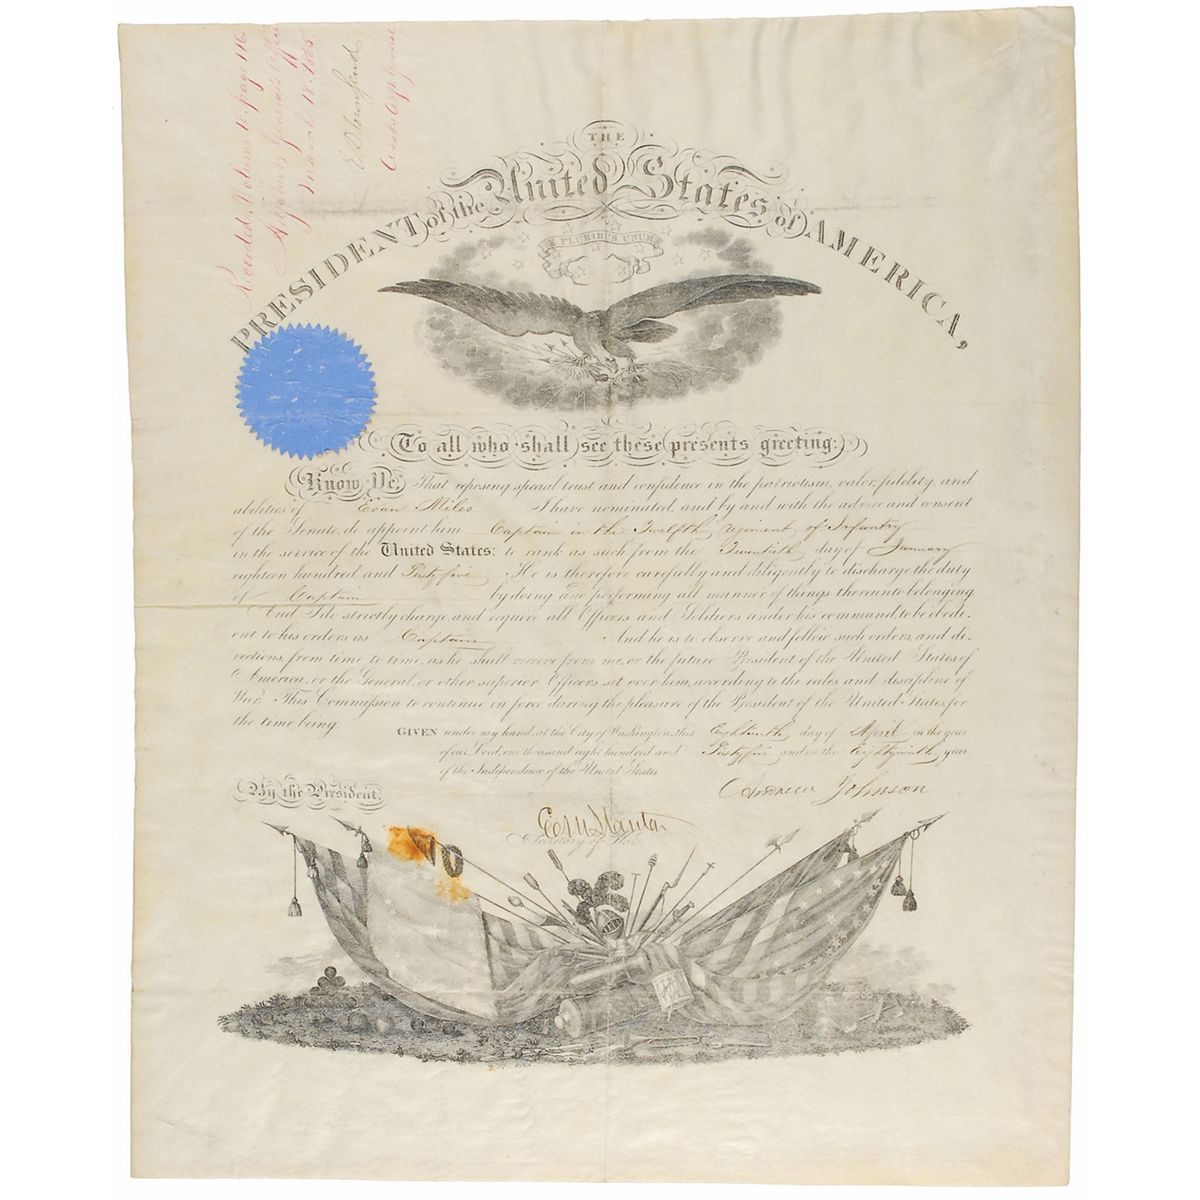 Received. Volume 18. page 116
Adjutant General's Office
March 18. 1865
E D Townsend
Asst. Adjt. General
THE
PRESIDENT of the United States of AMERICA,
E PLURIBUS UNUM
To all who shall see these presents greeting:
Know Ye, That reposing special trust and confidence in the patriotism, valor, fidelity, and
abilities of Evan Miles I have nominated, and by and with the advice and consent
of the Senate, do appoint him Captain in the Twelfth regiment of Infantry
in the service of the United States: to rank as such from the Twentieth day of January
eighteen hundred and Sixtyfive He is therefore carefully and diligently to discharge the duty
of Captain by doing and performing all manner of things thereunto belonging
And I do strictly charge, and require all Officers and Soldiers under his command, to be obedi-
ent to his orders as Captain And he is to observe and follow such orders, and di-
rections, from time, to time, as he shall receive from me, or the future President of the United States of
America, or the General, or other superior Officers set over him, according to the rules and discipline of
War. This Commission to continue in force during the pleasure of the President of the United States, for
the time being.
GIVEN under my hand, at the City of Washington, this Eighteenth day of April in the year
of our Lord, one thousand eight hundred and Sixtyfive and in the Eightyninth year
of the Independence of the United States
By the President, Andrew Johnson
Edwin M Stanton
Secretary of War.